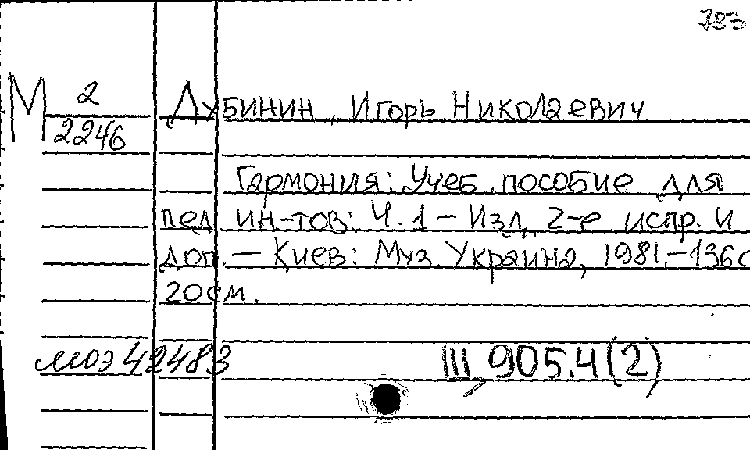 М 2
2246
Дубинин, Игорь Николаевич
Гармония: Учеб. пособие для
пед. ин-тов: Ч. 1 – Изд. 2-е испр. и
доп. – Киев: Муз. Украина, 1981. – 136с
20см.
моэ 42483
III 905.4(2)